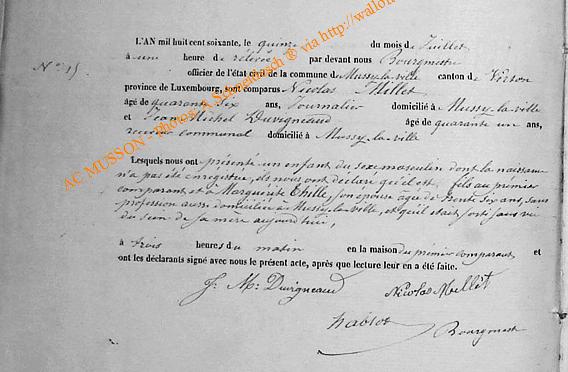 L'AN mil huit cent soixante, le quinze du mois de Juillet
N° 15
à une heure de relevée par devant nous Bourgmestre
officier de l'état civil de la commune de Mussy-la-ville canton de Virton
province de Luxembourg, sont comparus Nicolas Millet
âgé de quarante six ans, Journalier domicilié à Mussy-la-ville
et Jean Michel Duvigneaud âgé de quarante un ans,
receveur communal domicilié à Mussy-la-ville
Lesquels nous ont présenté un enfant du sexe masculin dont la naissance
n'a pas été enregistrée, ils nous ont déclaré qu'il est fils au premier
comparant et à Marguerite Thille, son épouse agée de trente six ans, sans
profession aussi domiciliée à Mussy-la-ville, et qu'il était sorti sans vie
du sein de sa mère aujourd'hui,
à trois heures du matin en la maison du premier comparant, et
ont les déclarants signé avec nous le présent acte, après que lecture leur en a été faite.
J. M. Duvigneaud Nicolas Millet
Bourgmest
AC MUSSON - Photos: A. ® via http://wallon